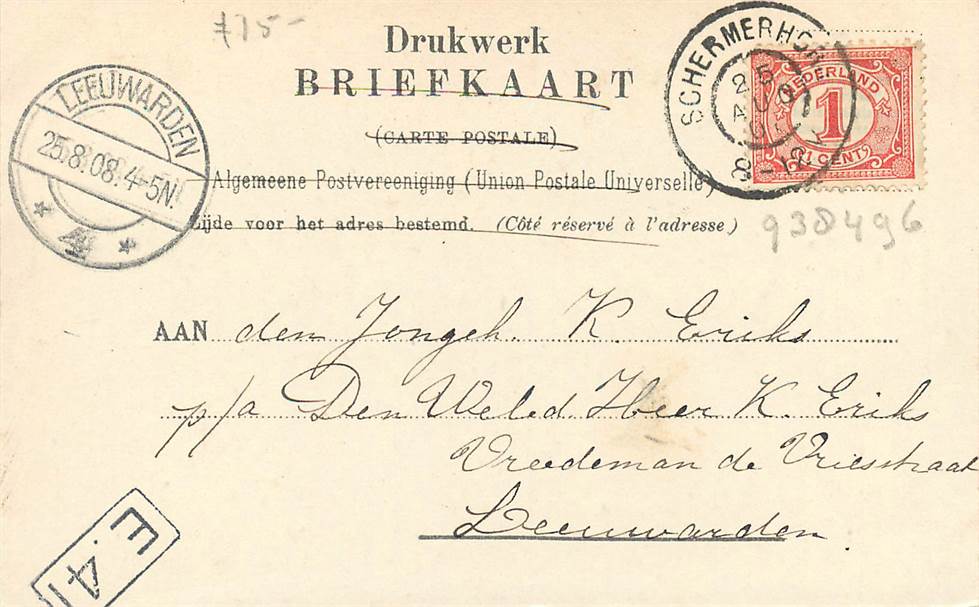 £75-
Drukwerk
BRIEFKAART
(CARTE POSTALE)
Algemeene Postvereeniging (Union Postale Universelle)
Zijde voor het adres bestemd. (Côté réservé à l'adresse)
LEEUWARDEN
25.8.08.4-5N.
4
SCHERMERHORN
25
AUG
NEDERLAND
1
CENT
938496
AAN den Jongeh. K. Eriks
p/a Den Weled Heer K. Eriks
Vreedeman de Vriesstraat
Leeuwarden.
E. 41